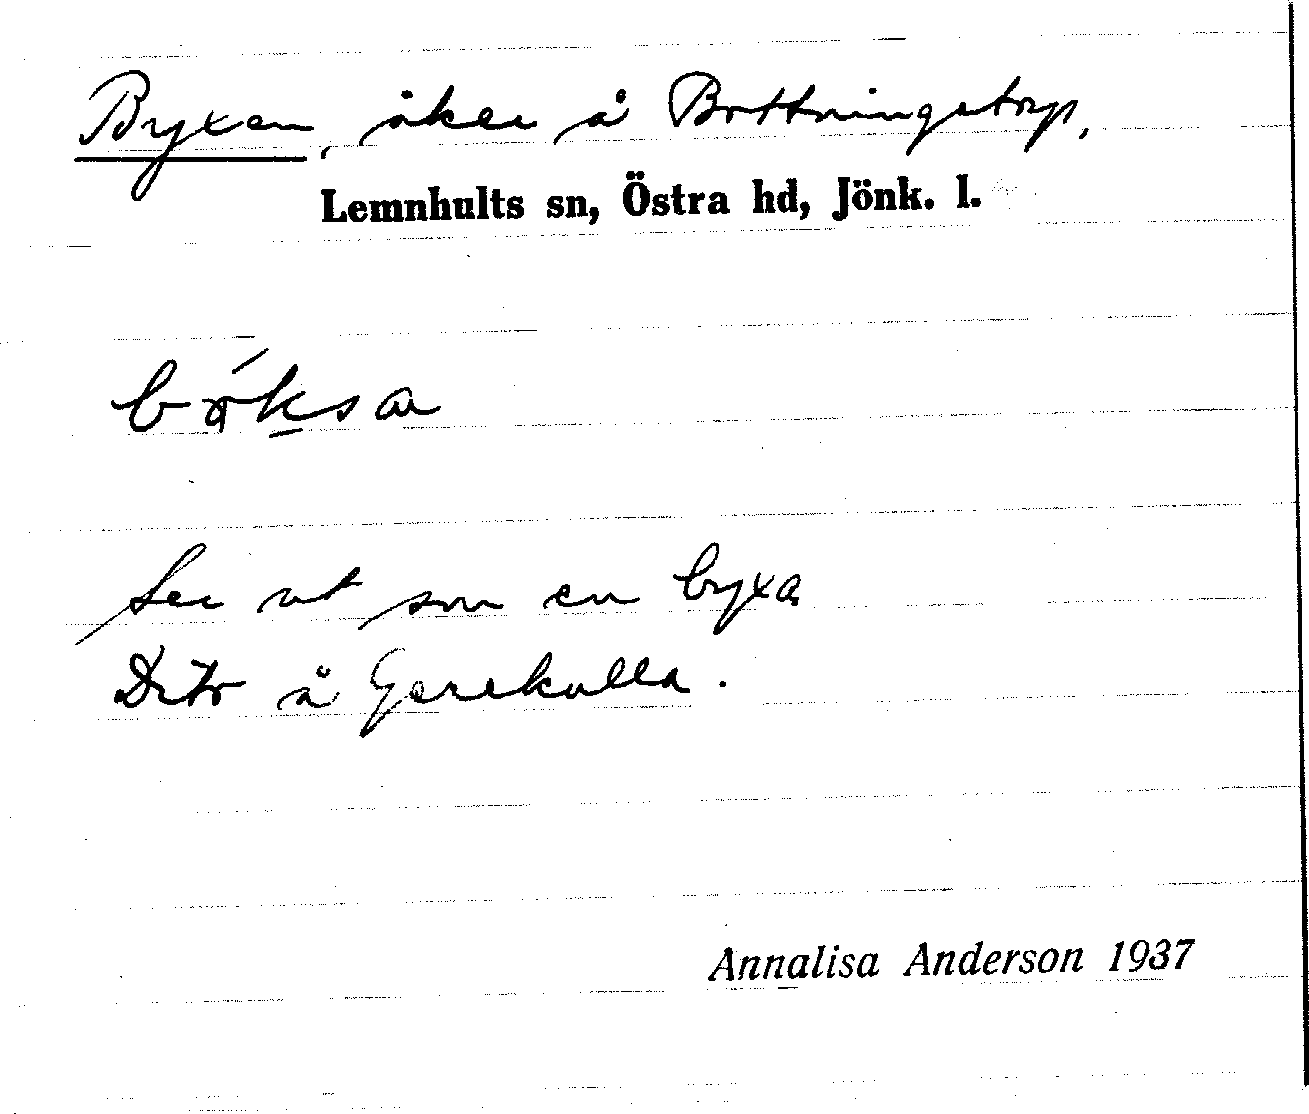 Byxen, åker å Bottningstorp,
Lemnhults sn, Östra hd, Jönk. l.
Ser ut som en byxa
Dito å Gerekulla.
Annalisa Anderson 1937